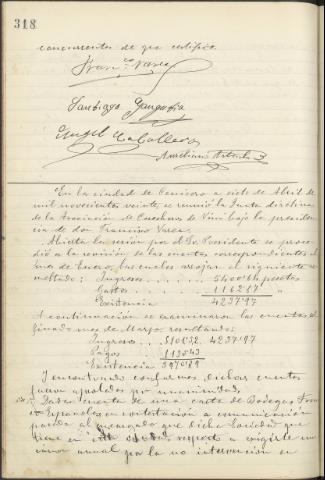 318
concurrentes de que certifico.
Fran.co Varea
Santiago
Angel Caballero
Aureliano
En la ciudad de Cenicero a siete de Abril de
mil novecientos veinte, se reunió la Junta directiva
de la Asociación de Cosecheros de Vino bajo la presiden
cia de don Francisco Varea.
Abierta la sesión por el Sr. Presidente se proce
dió a la revisión de las cuentas correspondientes al
mes de Enero, las cuales arrojan el siguiente re
sultado: Ingresos pesetas
Gastos 1162'87 "
Existencia 4237'97
A continuación se examinaron las cuentas del
finado mes de Marzo, resultando:
Ingresos 4237'97
Pagos
Existencia
Y encontrando conformes dichas cuentas
fueron aprobadas por unanimidad.
Dada cuenta de una carta de Bodegas Fran
co Españolas en contestación a comunicación
pasada al encargado que dicha Sociedad
tiene en esta respecto a exigirle un
canon anual por la no intervención en